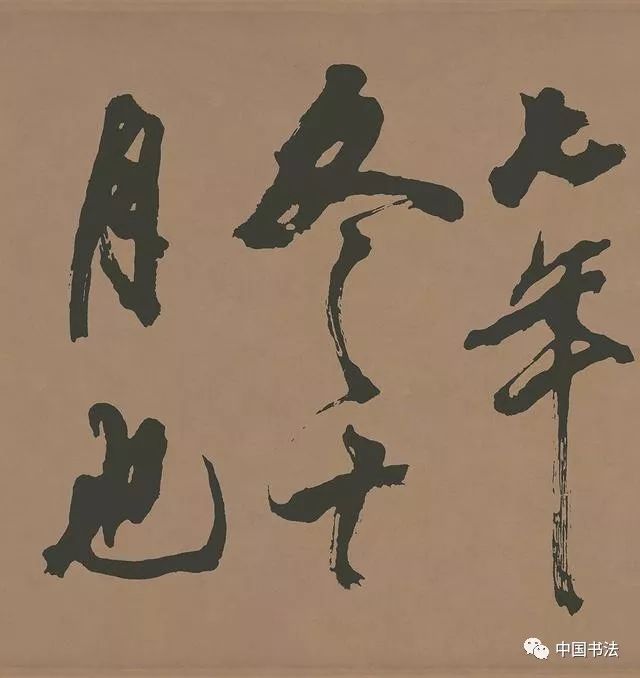 七年
冬十
月也
中国书法